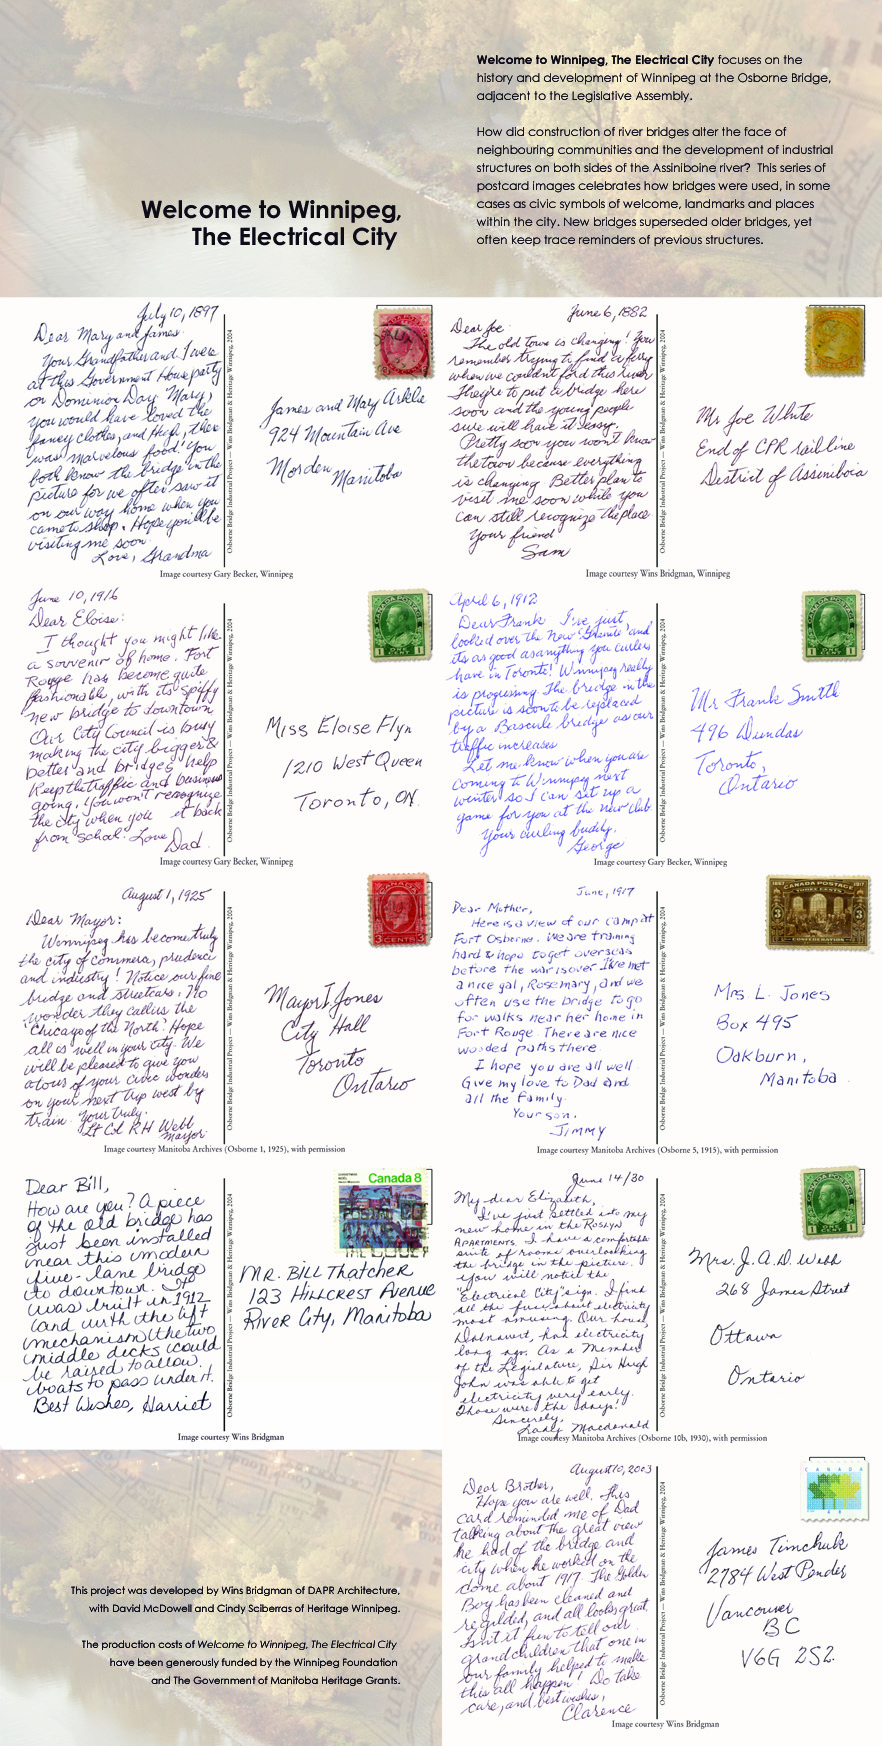 Welcome to Winnipeg,
The Electrical City
Welcome to Winnipeg, The Electrical City focuses on the
history and development of Winnipeg at the Osborne Bridge,
adjacent to the Legislative Assembly.
How did construction of river bridges alter the face of
neighbouring communities and the development of industrial
structures on both sides of the Assiniboine river? This series of
postcard images celebrates how bridges were used, in some
cases as civic symbols of welcome, landmarks and places
within the city. New bridges superseded older bridges, yet
often keep trace reminders of previous structures.
July 10, 1897
Dear Mary and James:
Your Grandfather and I were
at this Government House party
on Dominion Day. Mary,
you would have loved the
fancy clothes, and Hugh, there
was marvelous food! You
both know the bridge in the
picture for we often saw it
on our way home when you
came to shop. Hope you'll be
visiting me soon.
Love, Grandma
Osborne Bridge Industrial Project — Wins Bridgman & Heritage Winnipeg, 2004
James and Mary Arklie
924 Mountain Ave
Morden
Manitoba
Image courtesy Gary Becker, Winnipeg
June 6, 1882
Dear Joe:
The old town is changing! You
remember trying to find a ferry
when we couldn't ford this river
They're to put a bridge here
soon and the young people
sure will have it easy.
Pretty soon you won't know
the town because everything
is changing. Better plan to
visit me soon while you
can still recognize the place
Your friend
Sam
Osborne Bridge Industrial Project — Wins Bridgman & Heritage Winnipeg, 2004
Mr Joe White
End of CPR rail line
District of Assiniboia
Image courtesy Wins Bridgman, Winnipeg
June 10, 1916
Dear Eloise:
I thought you might like
a souvenir of home. Fort
Rouge has become quite
fashionable, with its spiffy
new bridge to downtown
Our City Council is busy
making the city bigger &
better and bridges help
keep the traffic and business
going. You won't recognize
the city when you et back
from school! Love
Dad
Osborne Bridge Industrial Project — Wins Bridgman & Heritage Winnipeg, 2004
CANADA POSTAGE
1 1
Miss Eloise Flyn
1210 West Queen
Toronto, ON.
Image courtesy Gary Becker, Winnipeg
April 6, 1912
Dear Frank I've just
looked over the new 'Granite' and
its as good as anything you curlers
have in Toronto! Winnipeg really
is progressing. The bridge in the
picture is soon to be replaced
by a Bascule bridge as our
traffic increases
Let me know when you are
coming to Winnipeg next
winter so I can set up a
game for you at the new club.
Your curling buddy.
George
Osborne Bridge Industrial Project — Wins Bridgman & Heritage Winnipeg, 2004
CANADA POSTAGE
1 1
Mr Frank Smith
496 Dundas
Toronto,
Ontario
Image courtesy Gary Becker, Winnipeg
August 1, 1925
Dear Mayor:
Winnipeg has become truly
the city of commerce, prudence
and industry! Notice our fine
bridge and streetcars. No
wonder they call us the
'Chicago of the North'! Hope
all is well in your city. We
will be pleased to give you
a tour of your civic wonders
on your next trip west by
train. Your truly.
Lt Col R H Webb
mayor
Osborne Bridge Industrial Project — Wins Bridgman & Heritage Winnipeg, 2004
3 CENTS 3
Mayor T Jones
City Hall
Toronto
Ontario
Image courtesy Manitoba Archives (Osborne 1, 1925), with permission
June, 1917
Dear Mother,
Here is a view of our camp at
Fort Osborne. We are training
hard & hope to get overseas
before the war is over I've met
a nice gal, Rosemary, and we
often use the bridge to go
for walks near her home in
Fort Rouge There are nice
wooded paths there
I hope you are all well
Give my love to Dad and
all the family.
Your son,
JIMMY
Osborne Bridge Industrial Project — Wins Bridgman & Heritage Winnipeg, 2004
1867 CANADA POSTAGE 1917
THREE CENTS
3 3
CONFEDERATION
Mrs L. Jones
Box 495
Oakburn,
Manitoba
Image courtesy Manitoba Archives (Osborne 5, 1915), with permission
Dear Bill,
How are you? A piece
of the old bridge has
just been installed
near this modern
five-lane bridge
to downtown. It
was built in 1912
(and with the lift
mechanism (the two
middle decks could
be raised to allow
boats to pass under it.
Best Wishes, Harriet
Osborne Bridge Industrial Project — Wins Bridgman & Heritage Winnipeg, 2004
Canada 8
MR. BILL Thatcher
123 HILLCREST AVENUE
RIVER CITY, MANITOBA
Image courtesy Wins Bridgman
June 14/30
My dear Elizabeth,
I've just settled into my
new home in the ROSLYN
APARTMENTS. I have a comfortable
suite of rooms overlooking
the bridge in the picture.
You will notice the
"Electrical City" sign. I find
all the fuss about electricity
most amusing. Our house,
Dalnavert, had electricity
long ago. As a Member
of the Legislature, Sir Hugh
John was able to get
electricity very early.
Those were the days!
Sincerely,
Lady Macdonald
Osborne Bridge Industrial Project — Wins Bridgman & Heritage Winnipeg, 2004
CANADA POSTAGE
1 1
Mrs. J. A. D. Webb
268 James Street
Ottawa
Ontario
Image courtesy Manitoba Archives (Osborne 10b, 1930), with permission
This project was developed by Wins Bridgman of DAPR Architecture,
with David McDowell and Cindy Sciberras of Heritage Winnipeg.
The production costs of Welcome to Winnipeg, The Electrical City
have been generously funded by the Winnipeg Foundation
and The Government of Manitoba Heritage Grants.
August 10, 2003
Dear Brother,
Hope you are well. This
card reminded me of Dad
talking about the great view
he had of the bridge and
city when he worked on the
dome about 1917. The Golden
Boy has been cleaned and
regilded, and all looks great.
Isn't it fun to tell our
grandchildren that one in
our family helped to make
this all happen! Do take
care, and best wishes,
Clarence
Osborne Bridge Industrial Project — Wins Bridgman & Heritage Winnipeg, 2004
CANADA
James Timchuk
2784 West Pender
Vancouver
BC
V6G 2S2
Image courtesy Wins Bridgman